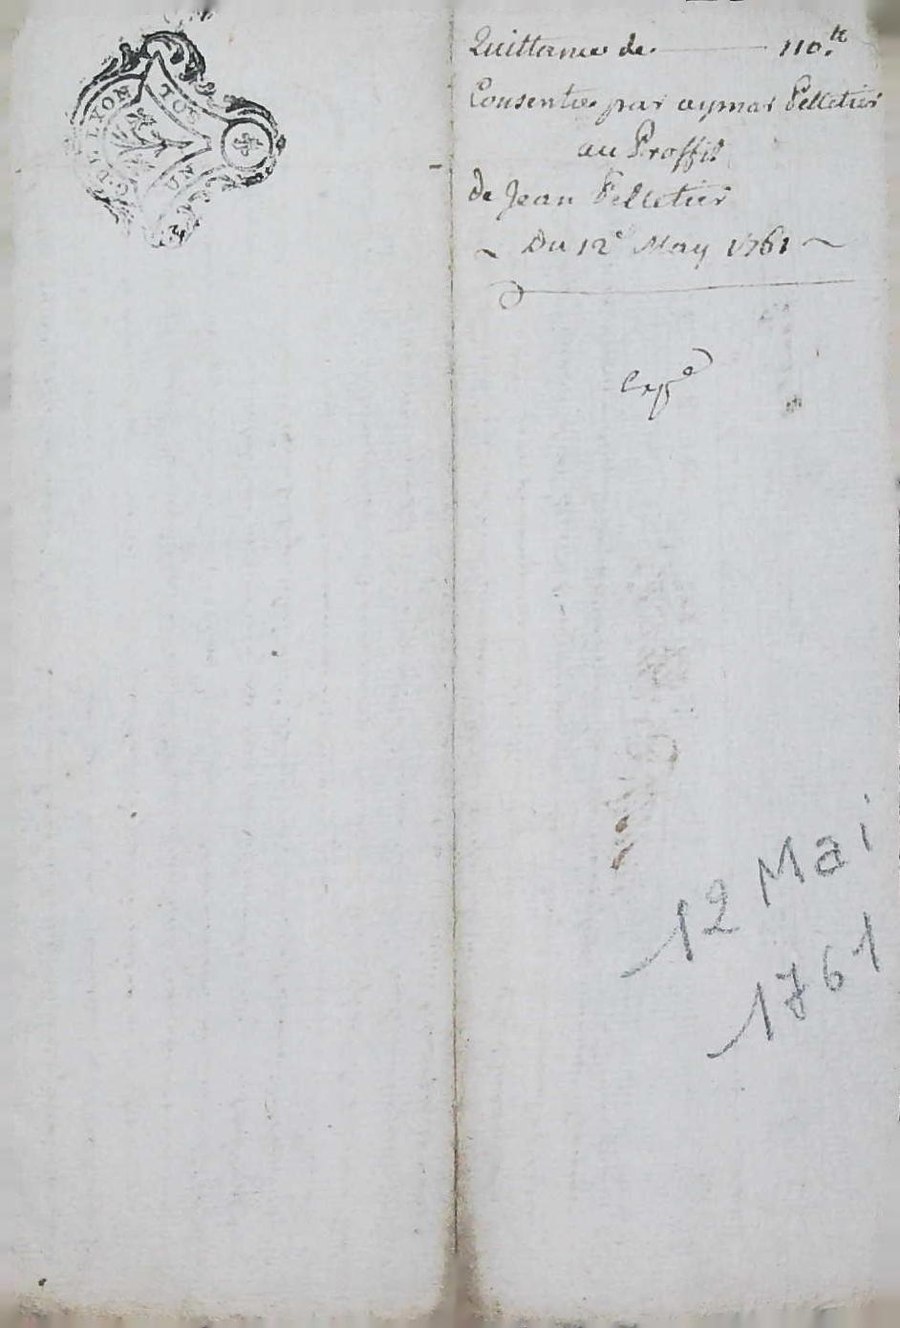 G. D. LYON
UN SOL
Quittance de 110.tt
Consentie par aymar Pelletier
au Proffit
de Jean Pelletier
~ Du 12e May 1761 ~
expe
12 Mai
1761